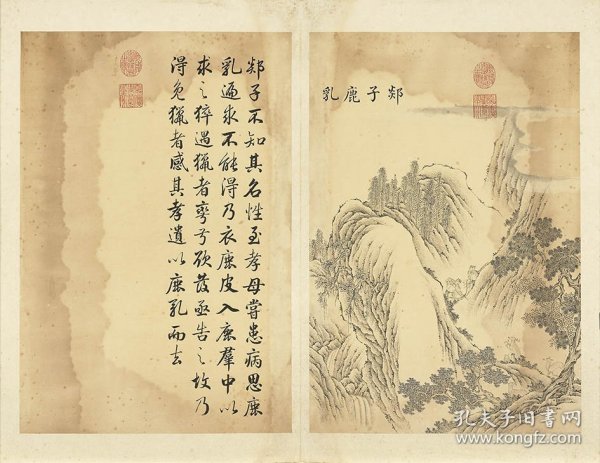 郯子鹿乳
郯子不知其名性至孝母嘗患病思鹿
乳遍求不能得乃衣鹿皮入鹿羣中以
求之猝遇獵者彎弓欲發亟告之故乃
得免獵者感其孝遺以鹿乳而去
孔夫子旧书网
www.kongfz.com